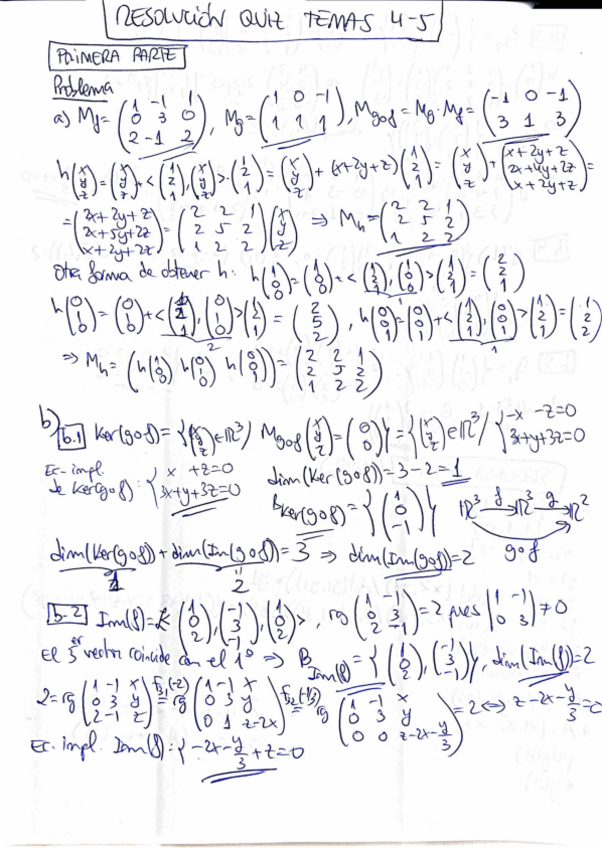 RESOLUCIÓN QUIZ TEMAS 4-5
PRIMERA PARTE
Problema
a) M_f = (1 -1 1; 0 3 0; 2 -1 2), M_g = (1 0 -1; 1 1 1), M_gof = M_g · M_f = (-1 0 -1; 3 1 3)
h(x y z) = (x y z) + <(1 2 1), (x y z)> · (1 2 1) = (x y z) + (x+2y+z)(1 2 1) = (x y z) + (x+2y+z; 2x+4y+2z; x+2y+z) =
= (2x+2y+z; 2x+5y+2z; x+2y+2z) = (2 2 1; 2 5 2; 1 2 2)(x y z) ⇒ M_h = (2 2 1; 2 5 2; 1 2 2)
Otra forma de obtener h: h(1 0 0) = (1 0 0) + <(1 2 1), (1 0 0)> (1 2 1) = (2 2 1)
1
h(0 1 0) = (0 1 0) + <(1 2 1), (0 1 0)> (1 2 1) = (2 5 2), h(0 0 1) = (0 0 1) + <(1 2 1), (0 0 1)> (1 2 1) = (1 2 2)
2 1
⇒ M_h = (h(1 0 0) h(0 1 0) h(0 0 1)) = (2 2 1; 2 5 2; 1 2 2)
b)
b.1 Ker(gof) = {(x y z) ∈ ℝ³ / M_gof (x y z) = (0 0)} = {(x y z) ∈ ℝ³ / {-x -z=0; 3x+y+3z=0
Ec-impl. de Ker(gof): {x +z=0; 3x+y+3z=0
dim(Ker(gof)) = 3-2 = 1
B_Ker(gof) = {(1 0 -1)}
ℝ³ f→ ℝ³ g→ ℝ²
gof
dim(Ker(gof)) + dim(Im(gof)) = 3 ⇒ dim(Im(gof)) = 2
1 2
b-2 Im(f) = L<(1 0 2), (-1 3 -1), (1 0 2)>, rg(1 -1; 0 3; 2 -1) = 2 pues |1 -1; 0 3| ≠ 0
El 3er vector coincide con el 1º ⇒ B_Im(f) = {(1 0 2), (-1 3 -1)}, dim(Im(f)) = 2
2 = rg(1 -1 x; 0 3 y; 2 -1 z) = rg(1 -1 x; 0 3 y; 0 1 z-2x) = rg(1 -1 x; 0 3 y; 0 0 z-2x-y/3) = 2 ⇔ z-2x-y/3 = 0
Ec. impl. Im(f): {-2x-y/3+z=0